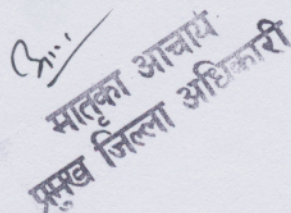 मातृका आचार्य
प्रमुख जिल्ला अधिकारी